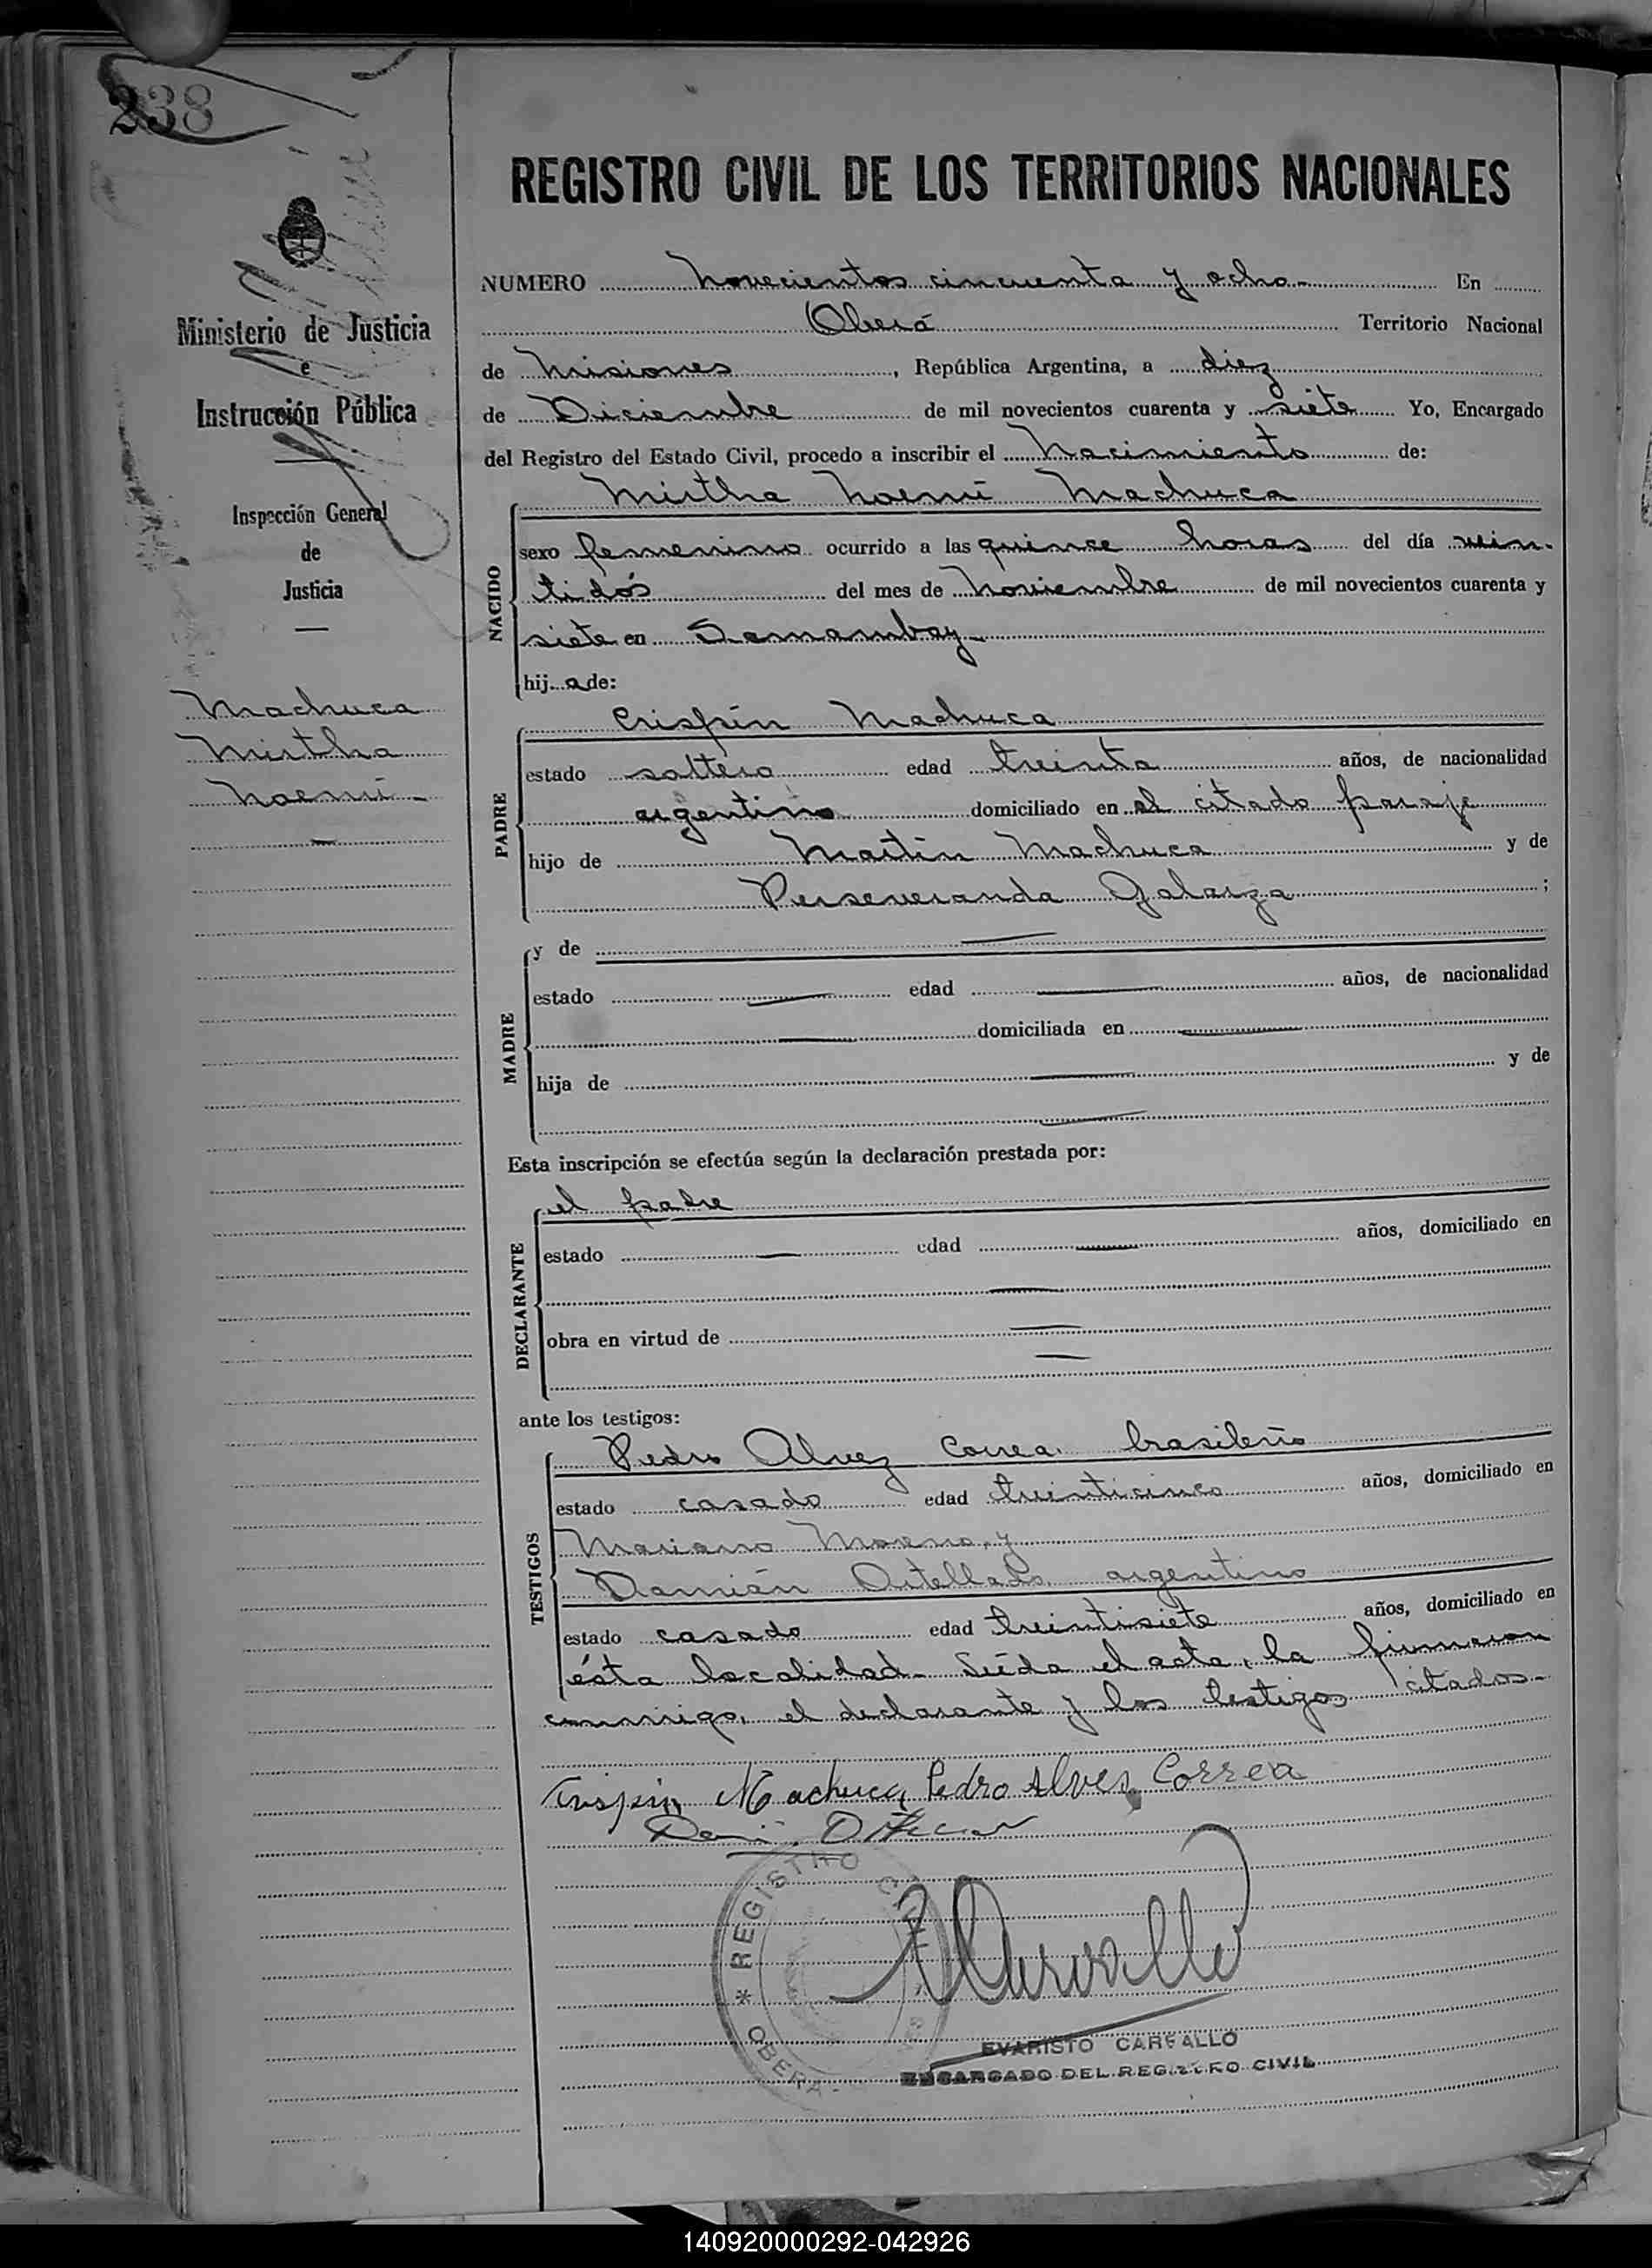 238
REGISTRO CIVIL DE LOS TERRITORIOS NACIONALES
Ministerio de Justicia
e
Instrucción Pública
Inspección General
de
Justicia
Machuca
Mirtha
Noemí
NUMERO novecientos cincuenta y ocho En
Oberá Territorio Nacional
de Misiones, República Argentina, a diez
de Diciembre de mil novecientos cuarenta y siete Yo, Encargado
del Registro del Estado Civil, procedo a inscribir el Nacimiento de:
Mirtha Noemí Machuca
NACIDO
sexo femenino ocurrido a las quince horas del día vein-
tidós del mes de Noviembre de mil novecientos cuarenta y
siete en Samambay
hija de:
PADRE
Crispín Machuca
estado soltero edad treinta años, de nacionalidad
argentino domiciliado en el citado paraje
hijo de Martín Machuca y de
Perseveranda Galarza;
MADRE
y de
estado edad años, de nacionalidad
domiciliada en
hija de y de
Esta inscripción se efectúa según la declaración prestada por:
DECLARANTE
el padre
estado edad años, domiciliado en
obra en virtud de
ante los testigos:
TESTIGOS
Pedro Alvez Correa, brasileño
estado casado edad treinticinco años, domiciliado en
Mariano Moreno, y
Damián Ortellado, argentino
estado casado edad treintisiete años, domiciliado en
ésta localidad. Leída el acta, la firmaron
conmigo, el declarante y los testigos citados.
Crispin Machuca, Pedro Alves Correa
REGISTRO CIVIL
* OBERA -
EVARISTO CARVALLO
ENCARGADO DEL REGISTRO CIVIL
140920000292-042926